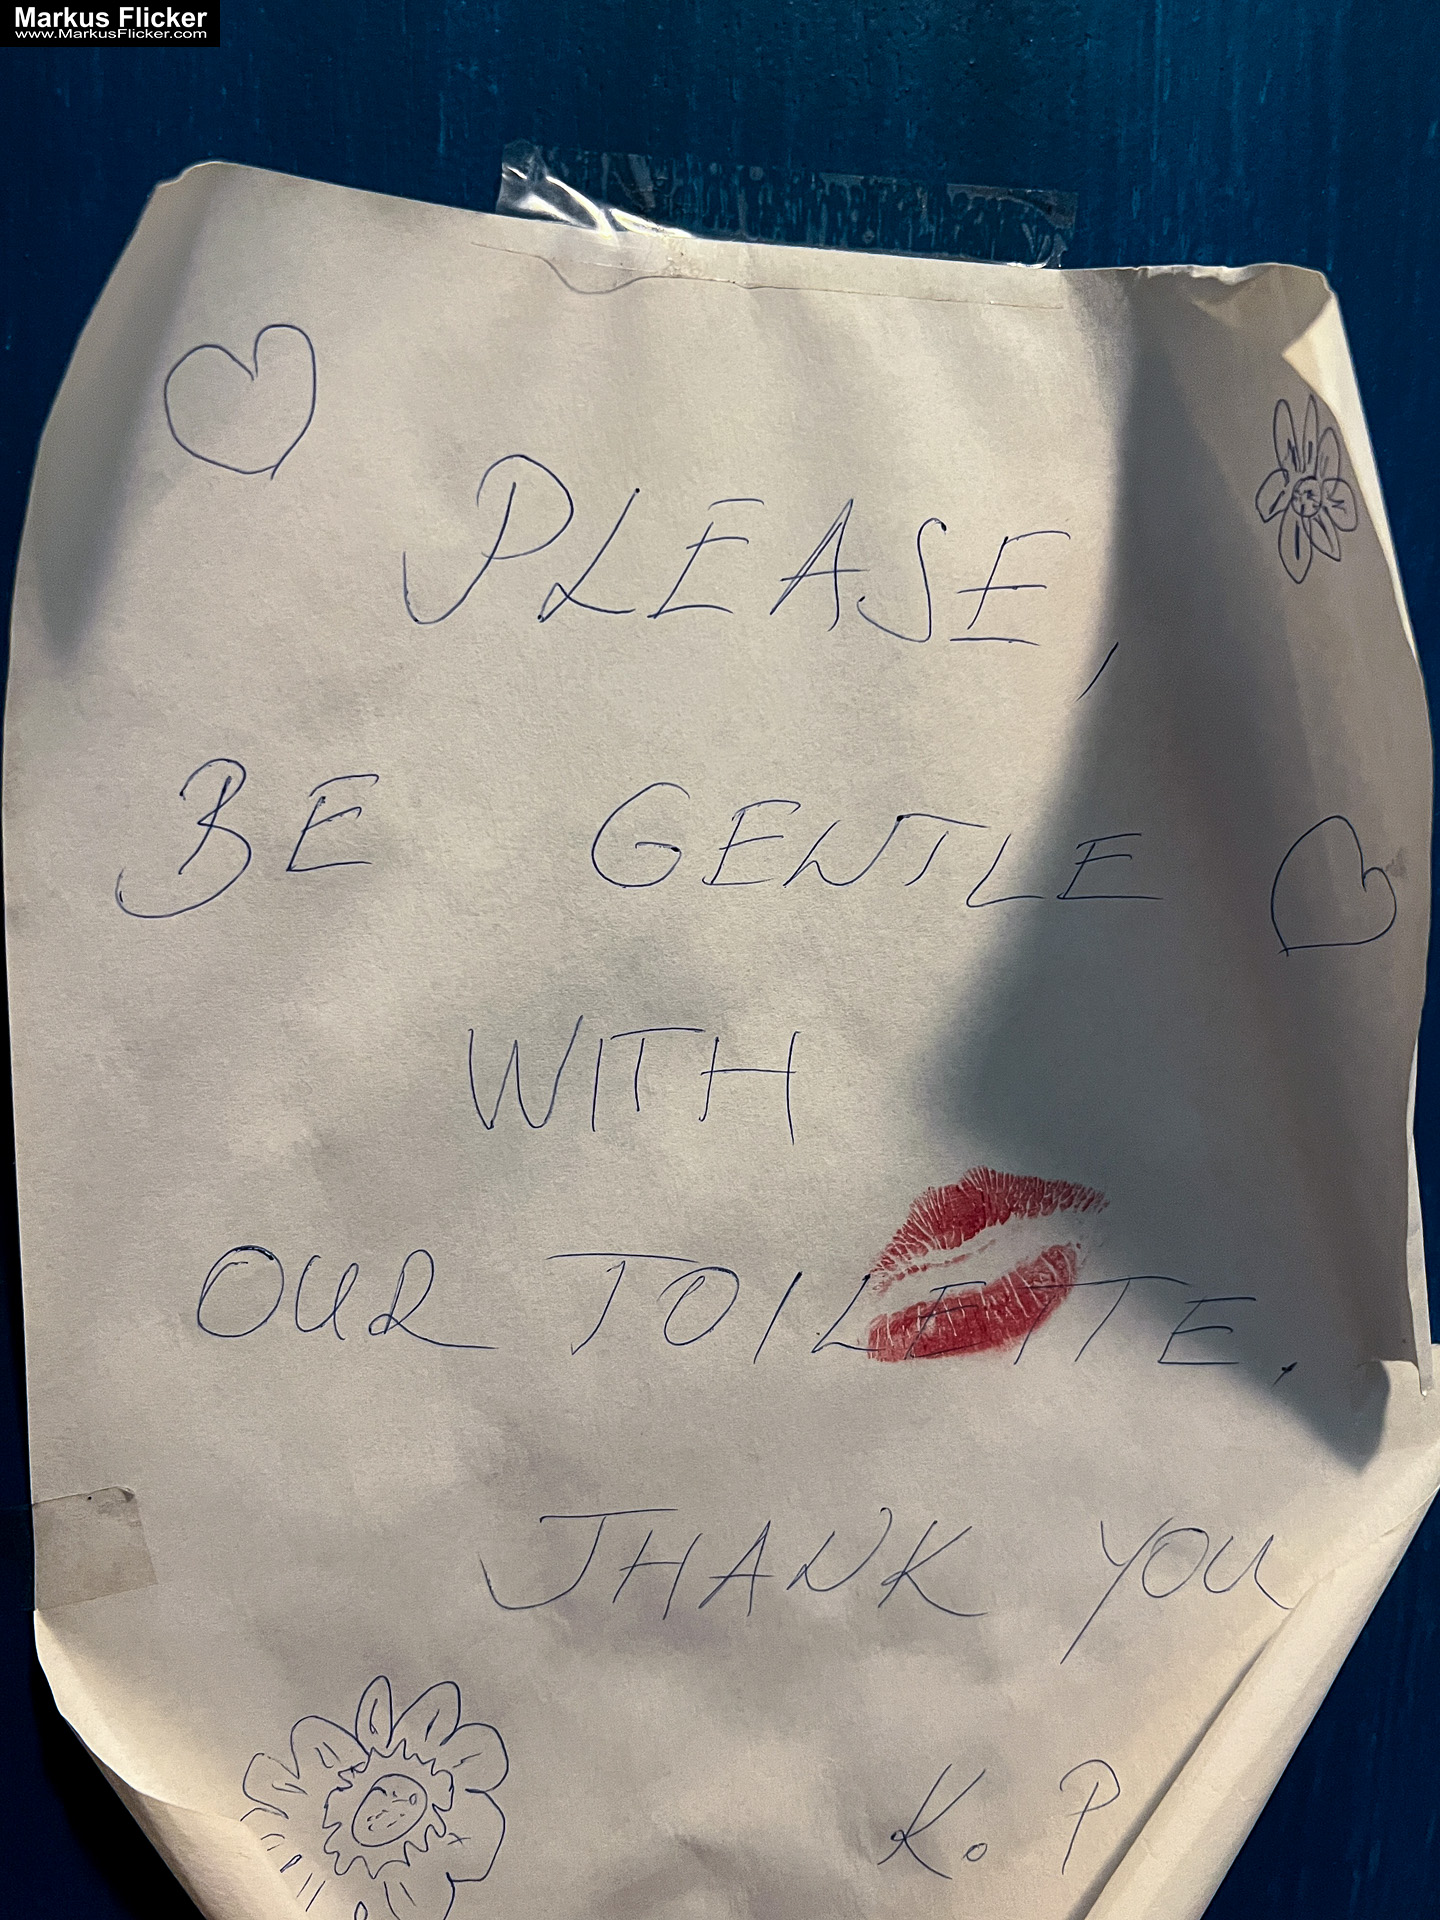 Markus Flicker
www.MarkusFlicker.com
PLEASE,
BE GENTLE
WITH
OUR TOILETTE.
THANK YOU
K. P